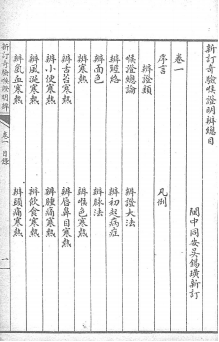 新訂奇驗喉證明辨總目
閩中同安吳錫璜新訂
卷一
序言
凡例
辨證類
喉證總論
辨證大法
辨經絡
辨初起病症
辨面色
辨脉法
辨寒熱
辨喉色寒熱
辨舌苔寒熱
辨唇鼻目寒熱
辨小便寒熱
辨腫痛寒熱
辨風涎寒熱
辨飲食寒熱
辨氣血寒熱
辨頭痛寒熱
新訂奇驗喉證明辨
卷一 目錄
一